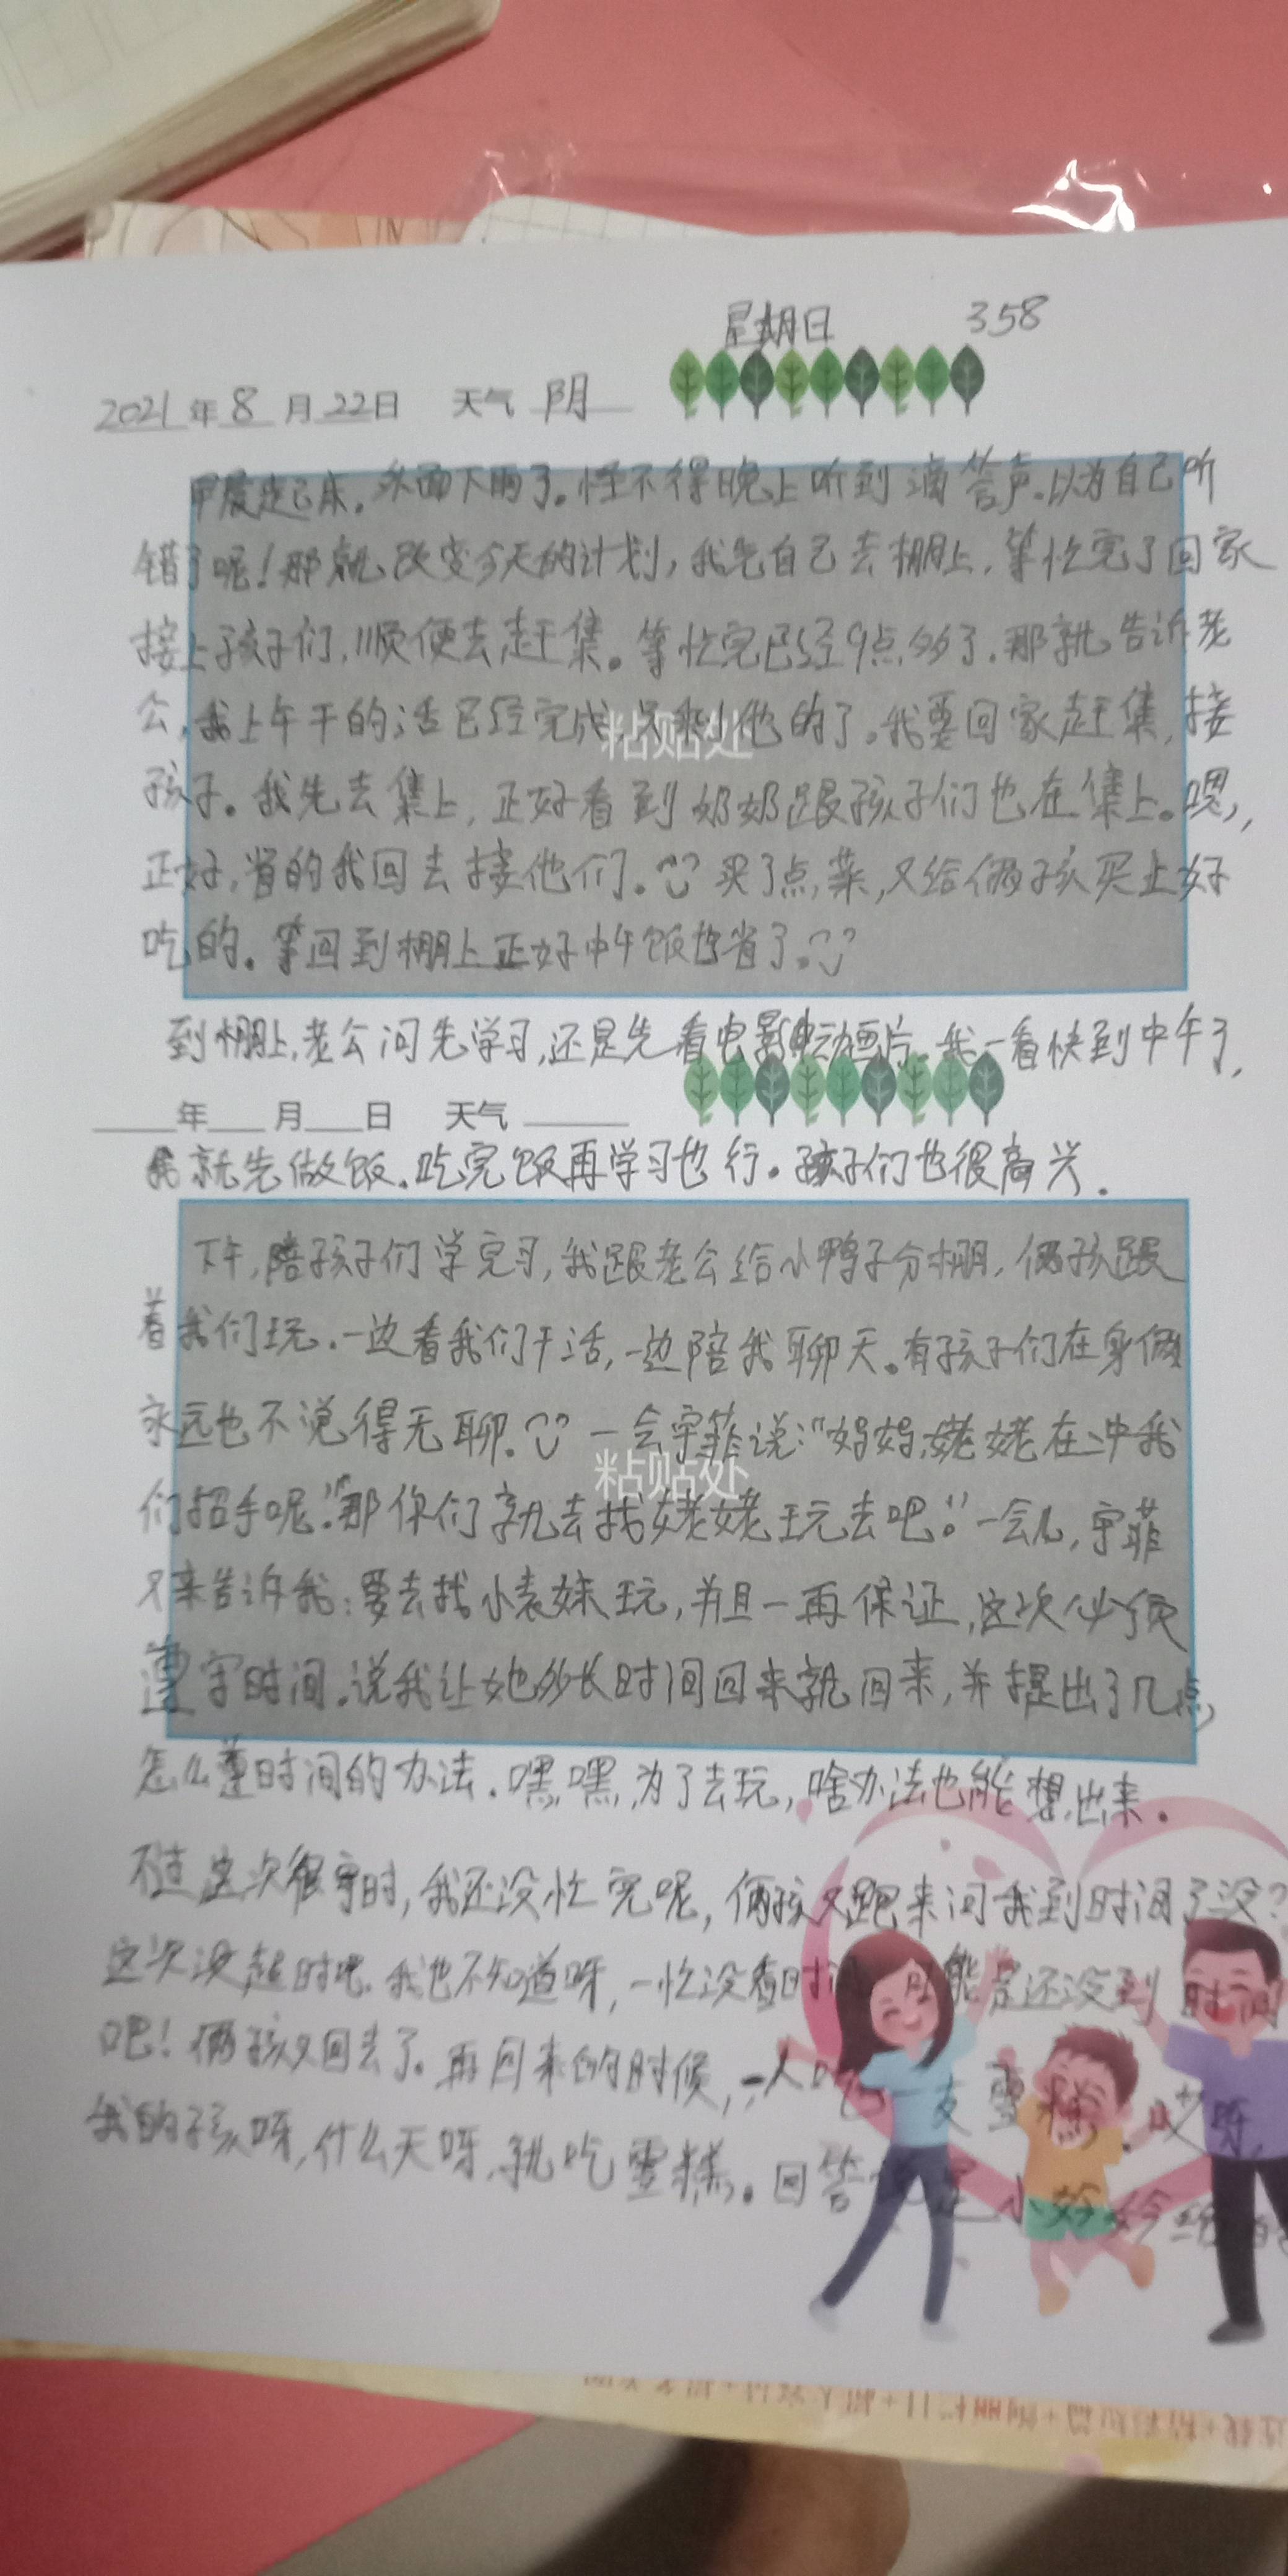 星期日 358
2021年8月22日 天气 阴
早晨起床,外面下雨了。怪不得晚上听到滴答声,以为自己听
错了呢!那就改变今天的计划,我先自己去棚上,等忙完了回家
接上孩子们,顺便去赶集。等忙完已经9点多了,那就告诉老
公,我上午干的活已经完成,只剩他的了。我要回家赶集,接
粘贴处
孩子。我先去集上,正好看到奶奶跟孩子们也在集上。嘿,
正好,省的我回去接他们。买了点菜,又给俩孩买上好
吃的。等回到棚上正好中午饭也省了。
到棚上,老公问先学习,还是先看电影动画片。我一看快到中午了,
年 月 日 天气
我就先做饭。吃完饭再学习也行。孩子们也很高兴.
下午,陪孩子们学完习,我跟老公给小鸭子分棚,俩孩跟
着我们玩.一边看我们干活,一边陪我聊天。有孩子们在身
永远也不说得无聊.一会宇菲说:"妈妈,姥姥在冲我
粘贴处
们招手呢"."那你们就去找姥姥玩去吧."一会儿,宇菲
又来告诉我:要去找小表妹玩,并且一再保证,这次必须
遵守时间.说我让她多长时间回来就回来,并提出了几点,
怎么遵时间的办法.嘿嘿,为了去玩,啥办法也能想出来.
不过这次很守时,我还没忙完呢,俩孩又跑来问我到时间了没?
这次没超时吧.我也不知道呀,一忙没看时间,可能是还没到时间
吧!俩孩又回去了.再回来的时候,一人吃支雪糕.哎呀,
我的孩呀,什么天呀,就吃雪糕。回答说是小妗妗给的